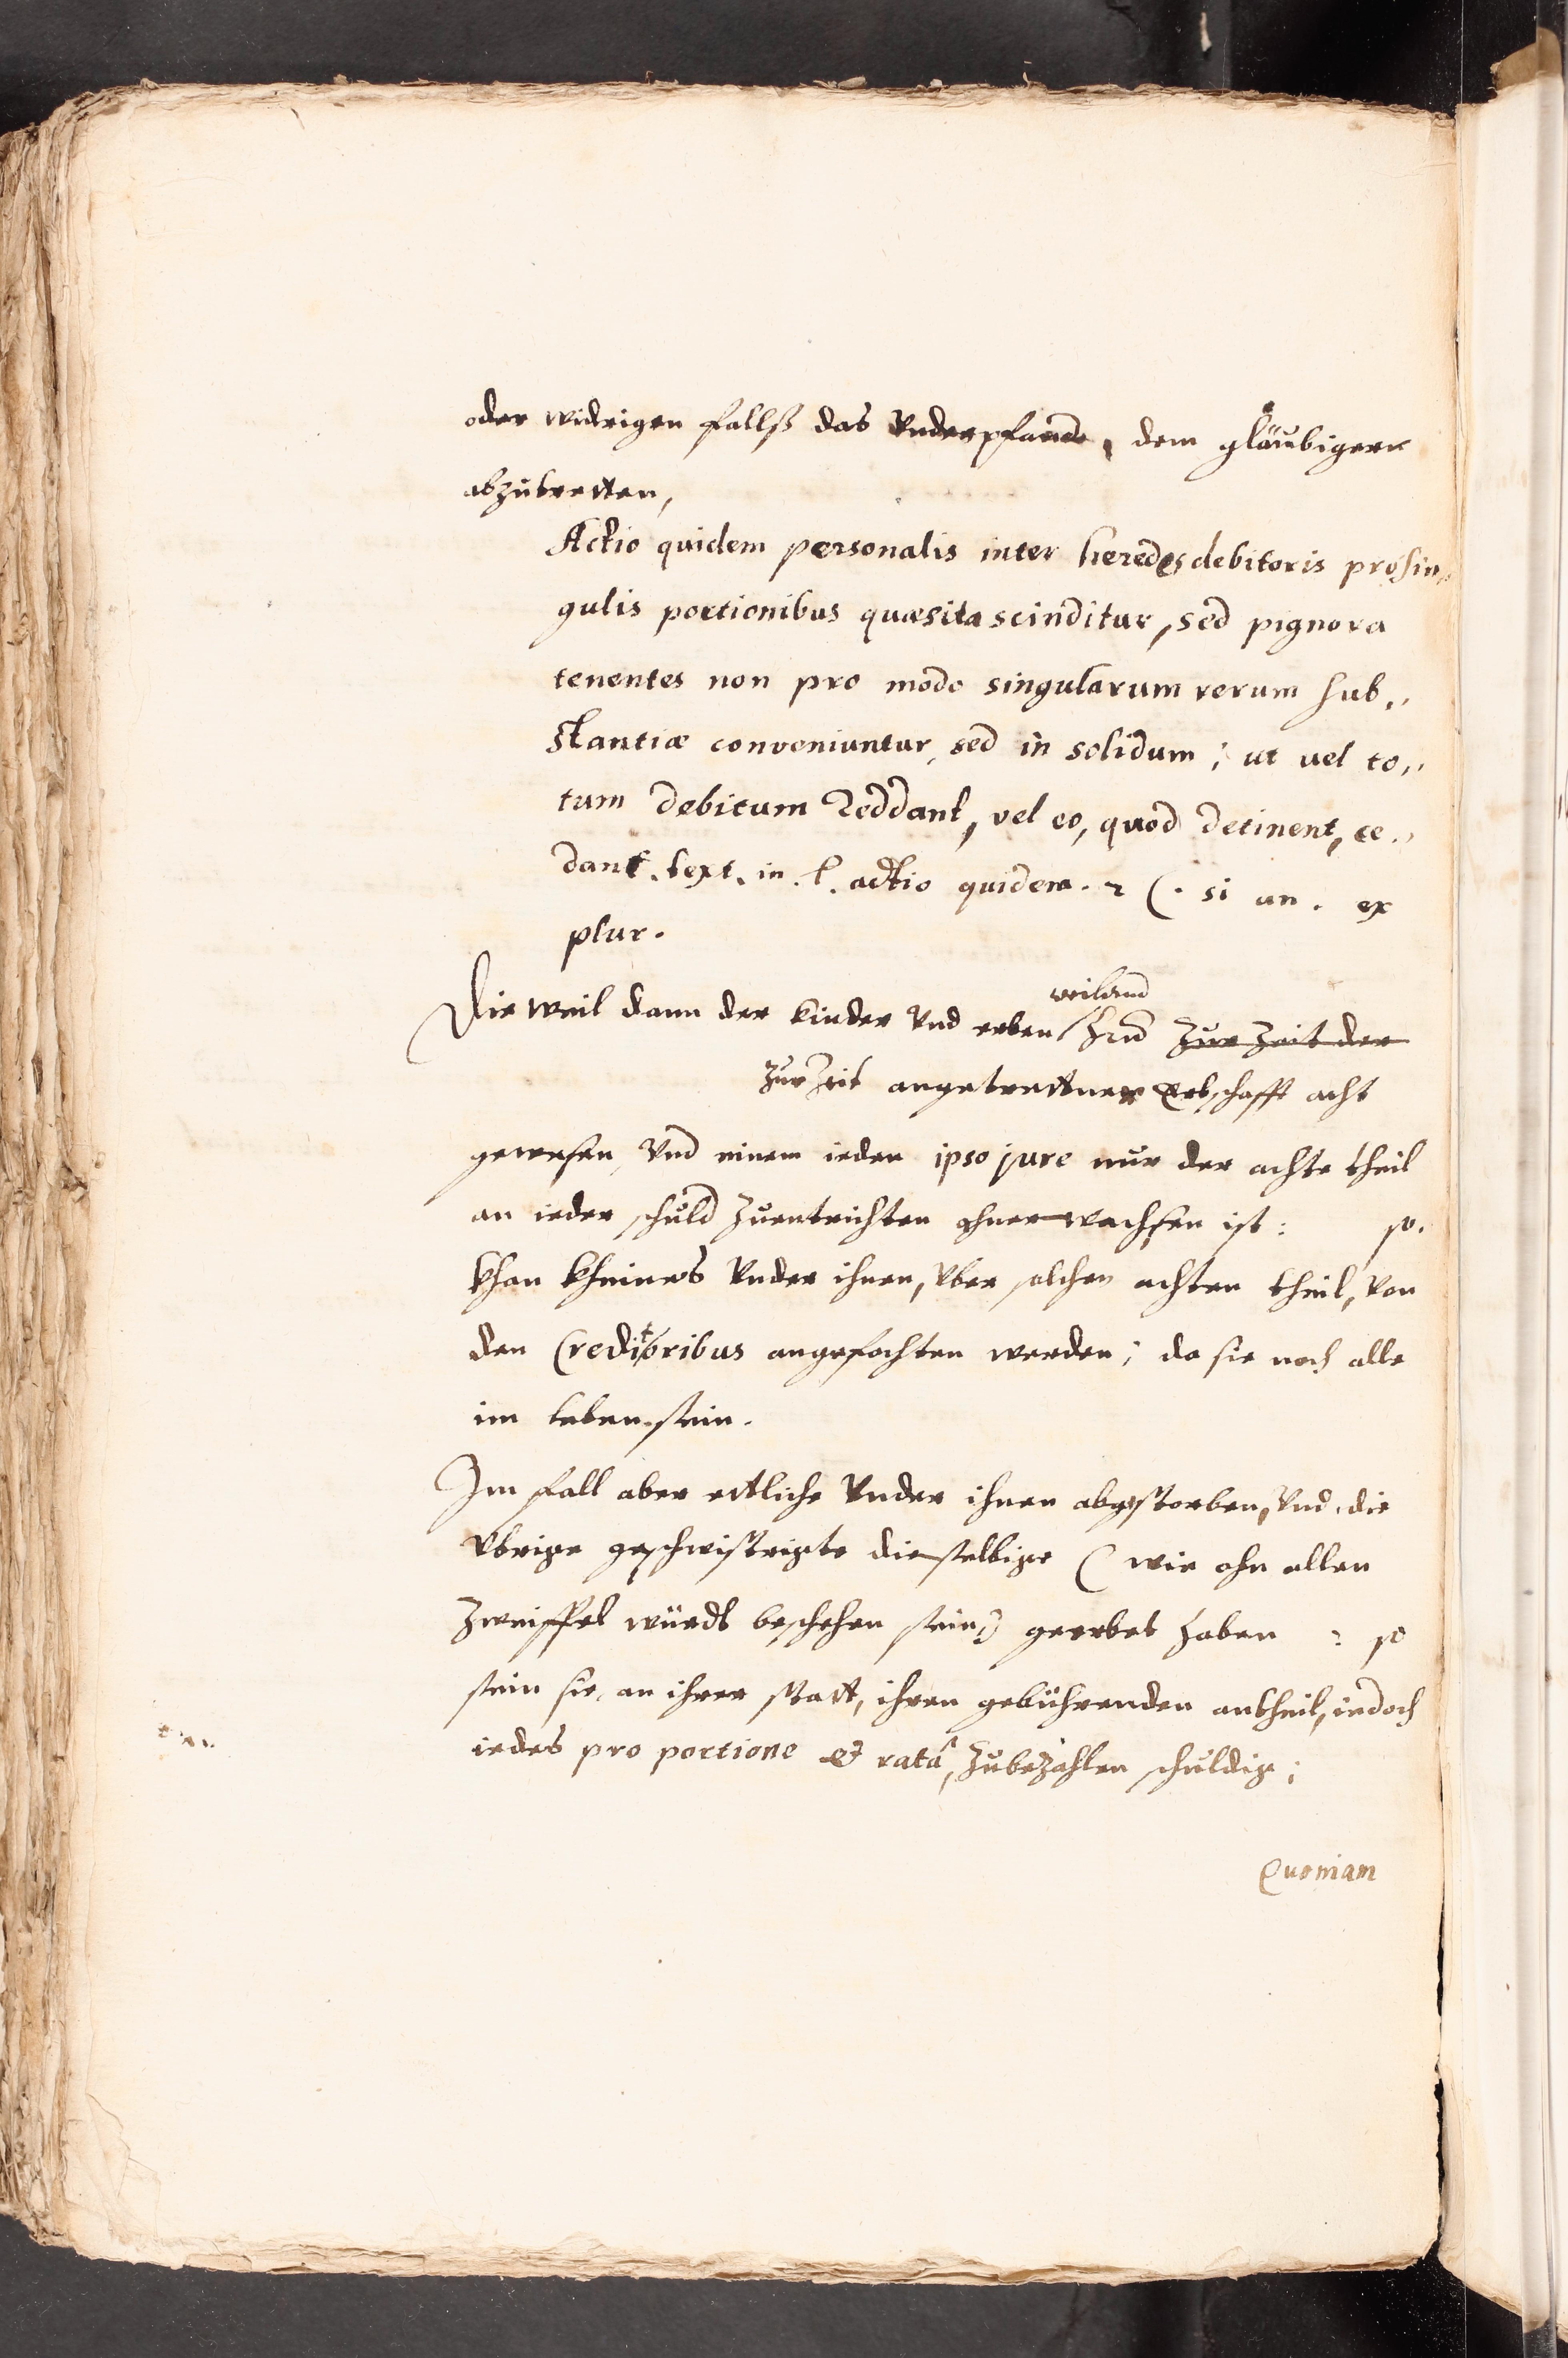 oder widrigen fallß das Vnderpfande, dem gläubigern
abzutretten,
Actio quidem personalis inter heredes debitoris pro sin„
gulis portionibus quæsita scinditur, sed pignora
tenentes non pro modo singularum rerum sub„
stantiæ conveniuntur, sed in solidum; ut vel to„
tum debitum reddant, vel eo, quod detinent, ce„
dant. text. in. l. actio quidem. 2 C. si un. ex
plur.
weiland
Die weil dann der kinder Vnd erben zur Zeit der
zur Zeit angetrettner Erbschafft acht
gewesen, Vnd einem ieden ipso jure nur der achte theil
an ieder schuld zuentrichten ahnerwachsen ist: so.
khan kheines Vnder ihnen, Vber solchen achten theil, von
den Creditoribus angefochten werden; da sie noch alle
im leben sein.
Im fall aber ettliche Vnder ihnen abgestorben, Vnd die
Vbrige geschwistrigte dieselbige (wie ohn allen
Zweiffel würdt beschehen sein) geerbet haben : so
sein sie, an ihrer statt, ihren gebührenden antheil, iedoch
iedes pro portione et ratâ, zubezahlen schuldig;
Quoniam